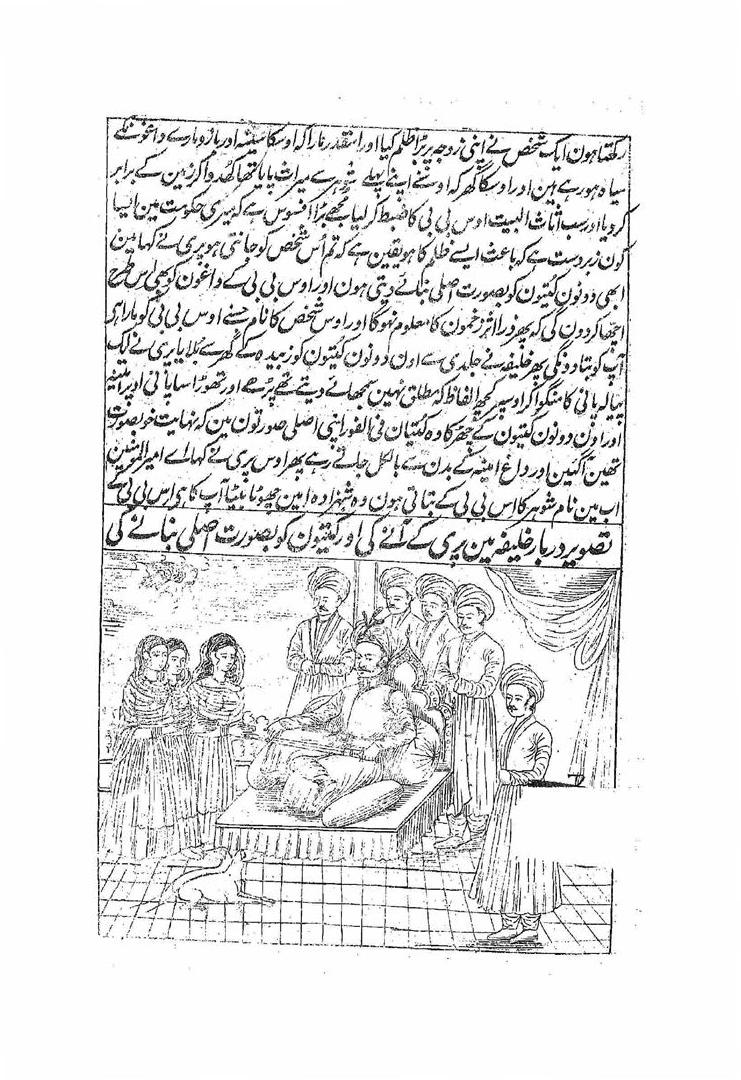 رکھتا ہون ایک شخص نے اپنی زوجہ پر بڑا ظلم کیا اور اسقدر مارا کہ اوسکا سینہ اور بازو مارے داغونکے
سیاہ ہو رہے ہین اور اوسکا گھر کہ اوسنے اپنے پہلے شوہر سے میراث پایا تھا کھدوا کر زمین کے برابر
کر دیا اور سب اثاث البیت اوس بی بی کا ضبط کر لیا اب مجھے بڑا افسوس ہے کہ میری حکومت مین ایسا
کون زبردست ہے کہ باعث ایسے ظلم کا ہو یقین ہے کہ تم اُس شخص کو جانتی ہو پری نے کہا مین
ابھی دونون کتیون کو بصورت اصلی بنائے دیتی ہون اور اوس بی بی کے داغون کو بھی اس طرح
اچھا کر دون گی کہ پھر ذرا اثر زخمون کا معلوم نہوگا اور اوس شخص کا نام جسنے اوس بی بی کو مارا ہی
آپ کو بتا دونگی پھر خلیفہ نے جلدی سے اون دونون کتیون کو زبیدہ کے گھر سے بلایا پری نے ایک
پیالہ پانی کا منگوا کر اوسپر کچھ الفاظ کہ مطلق نہین سمجھائے دیتے تھے پڑھے اور تھوڑا سا پانی اوپر امینہ
اور اون دونون کتیون کے چھڑکا وہ کتیان فی الفور اپنی اصلی صورتون مین کہ نہایت خوبصورت
تھین آگئین اور داغ امینہ کے بدن سے بالکل جاتے رہے پھر اوس پری نے کہا اے امیر المومنین
اب مین نام شوہر کا اس بی بی کے بتاتی ہون وہ شہزادہ امین چھوٹا بیٹا آپ کا ہی اس بی بی کے
تصویر دربار خلیفہ مین پری کے آنے کی اور کتیون کو بصورت اصلی بنانے کی